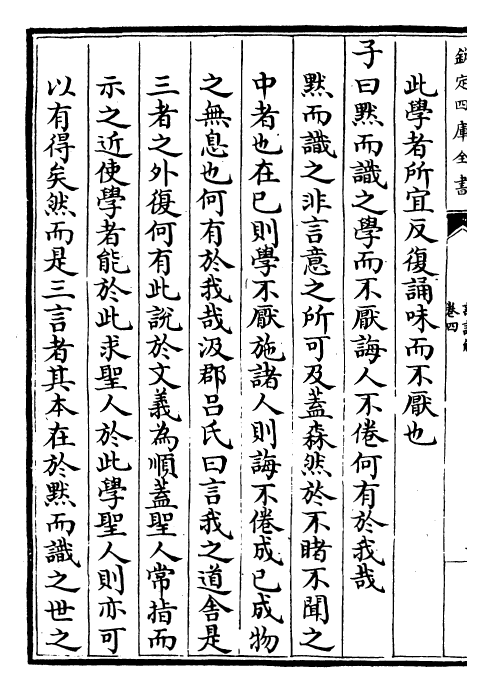 欽定四庫全書
卷四
此學者所宜反復誦味而不厭也
子曰黙而識之學而不厭誨人不倦何有於我哉
黙而識之非言意之所可及蓋森然於不睹不聞之
中者也在已則學不厭施諸人則誨不倦成已成物
之無息也何有於我哉汲郡呂氏曰言我之道舎是
三者之外復何有此説於文義為順蓋聖人常指而
示之近使學者能於此求聖人於此學聖人則亦可
以有得矣然而是三言者其本在於黙而識之世之